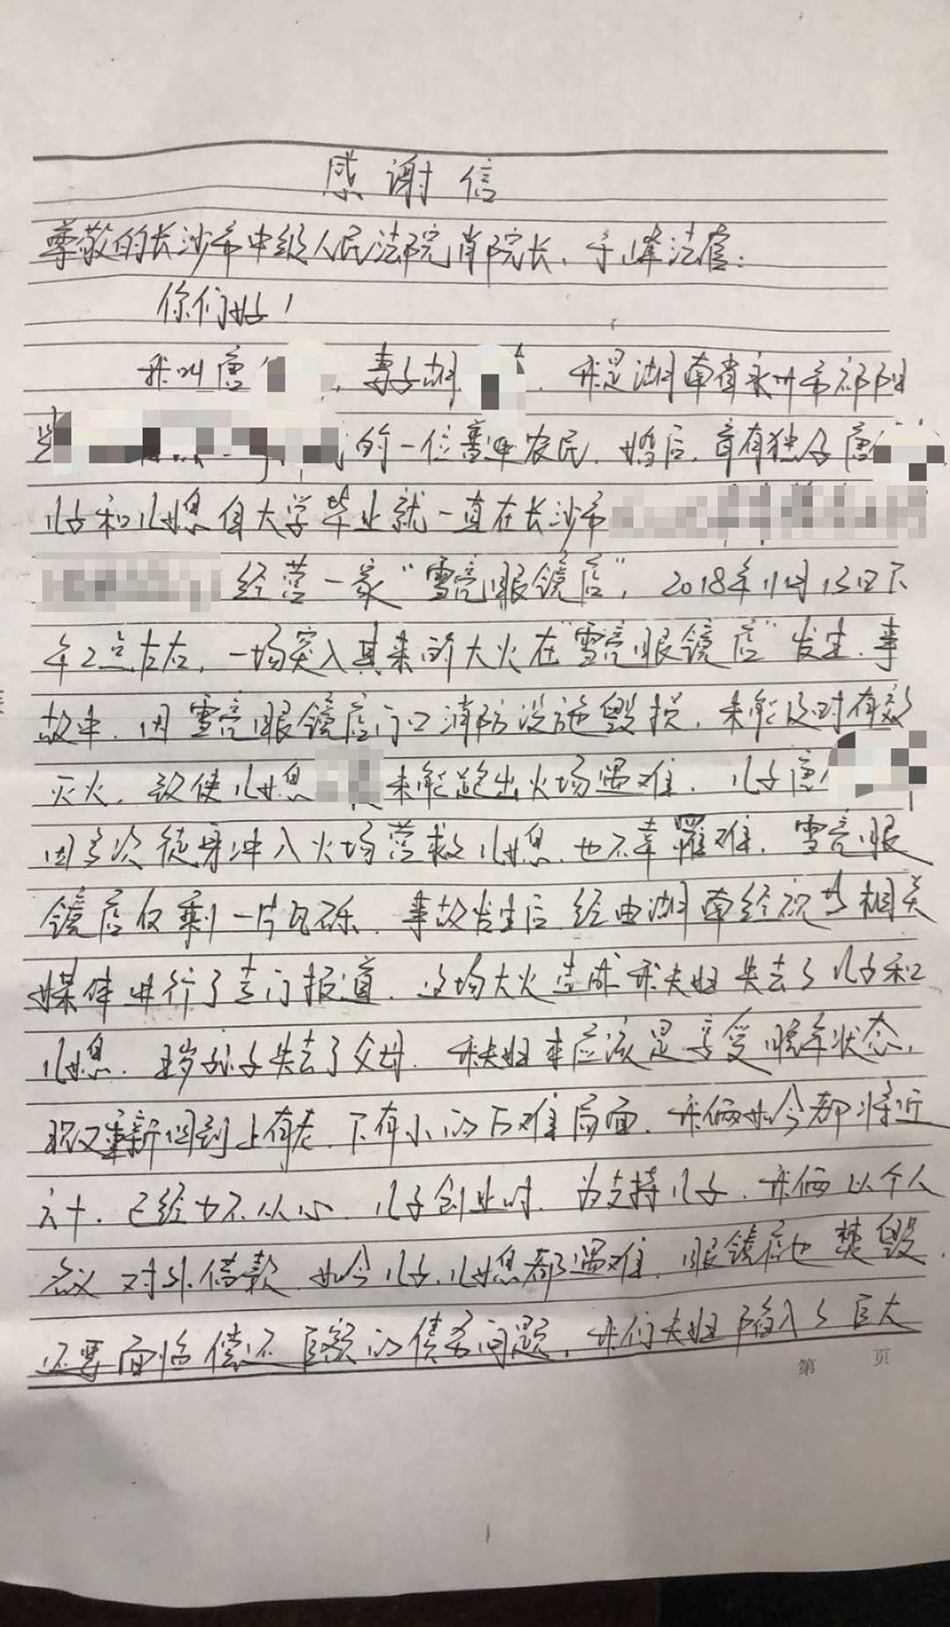 感谢信
尊敬的长沙市中级人民法院肖院长、于峰法官:
你们好!
我叫唐 ,妻子胡 ,我是湖南省永州市祁阳
的一位普通农民,婚后,育有独子唐
儿子和儿媳自大学毕业就一直在长沙市
经营一家“雪亮眼镜店”,2018年11月13日下
午2点左右,一场突入其来的大火在“雪亮眼镜店”发生,事
故中,因雪亮眼镜店门口消防设施毁损,未能及时有效
灭火,致使儿媳 未能跑出火场遇难,儿子唐
因多次徒身冲入火场营救儿媳,也不幸罹难,雪亮眼
镜店仅剩一片瓦砾,事故发生后,经由湖南经视等相关
媒体进行了专门报道,这场大火造成我夫妇失去了儿子和
儿媳, 岁孙子失去了父母,我夫妇本应该是享受晚年状态,
现又重新回到上有老,下有小的艰难局面,我俩如今都将近
六十,已经力不从心,儿子创业时,为支持儿子,我俩以个人
名义对外借款,如今儿子、儿媳都遇难,眼镜店也焚毁,
还要面临偿还巨额的债务问题,我们夫妇陷入了巨大
第 页